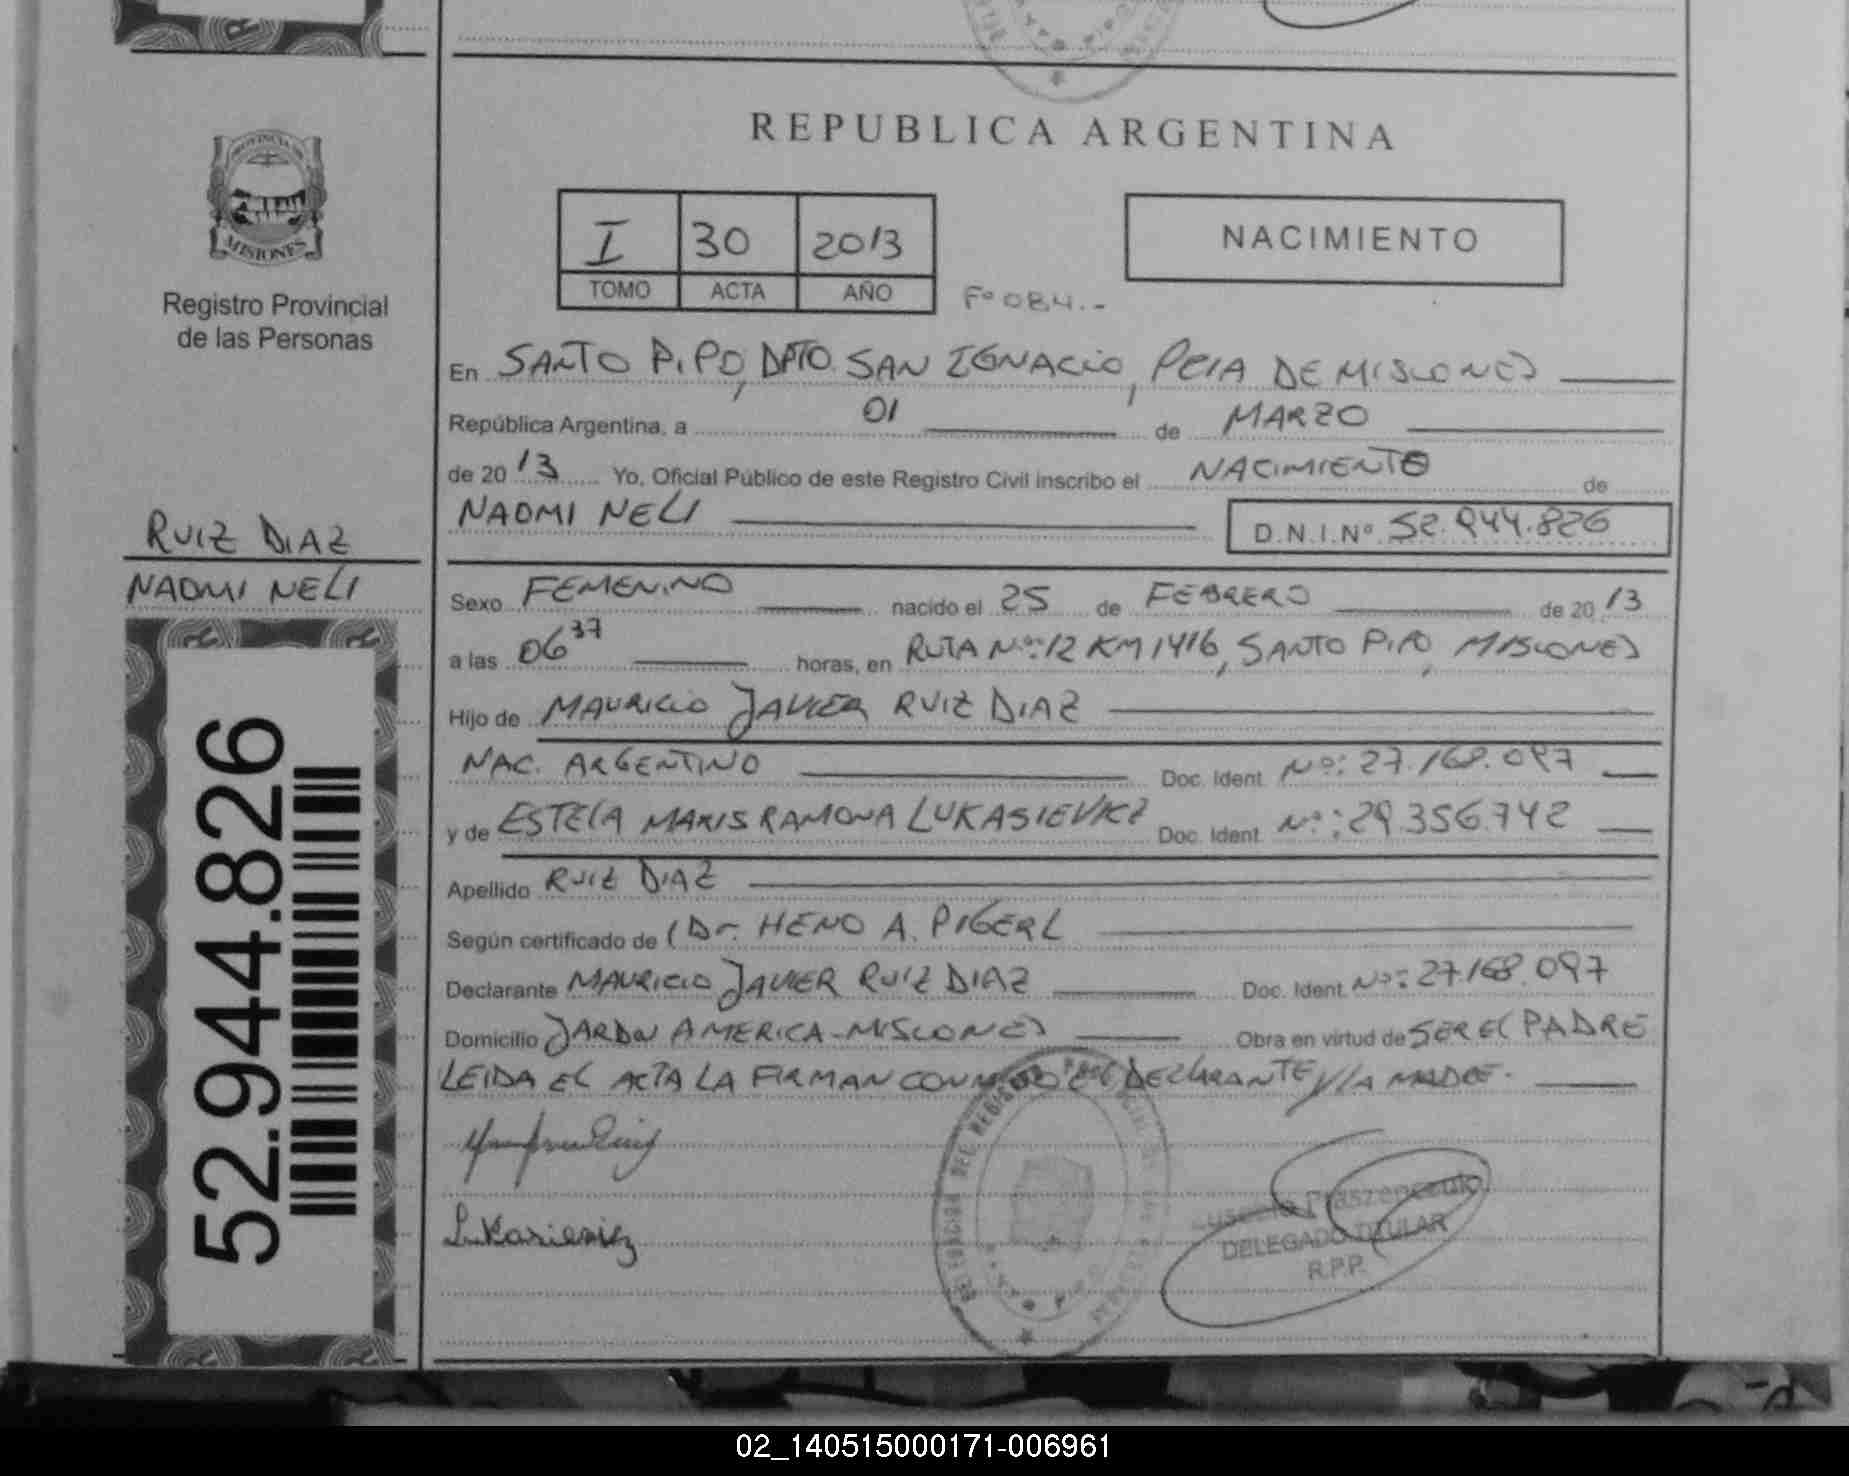 REPUBLICA ARGENTINA
PROVINCIA DE
MISIONES
Registro Provincial
de las Personas
I 30 2013
TOMO ACTA AÑO
Fº 084.-
NACIMIENTO
En SANTO PIPO, DPTO. SAN IGNACIO, PCIA DE MISIONES
República Argentina, a 01 de MARZO
de 20 13 Yo, Oficial Público de este Registro Civil inscribo el NACIMIENTO de
NAOMI NELI D.N.I.Nº 52.944.826
RUIZ DIAZ
NAOMI NELI
Sexo FEMENINO nacido el 25 de FEBRERO de 20 13
a las 06 37 horas, en RUTA Nº:12 KM 1416, SANTO PIPO, MISIONES
Hijo de MAURICIO JAVIER RUIZ DIAZ
NAC. ARGENTINO Doc. Ident. Nº: 27.168.097
y de ESTELA MARIS RAMONA LUKASIEVICZ Doc. Ident. Nº: 29.356.742
Apellido RUIZ DIAZ
Según certificado de (Dr. HENO A. PIGERL
Declarante MAURICIO JAVIER RUIZ DIAZ Doc. Ident. Nº: 27.168.097
Domicilio JARDIN AMERICA-MISIONES Obra en virtud de SER EL PADRE
LEIDA EL ACTA LA FIRMAN CONMIGO EL DECLARANTE Y LA MADRE.
52.944.826
DELEGADO TITULAR
R.P.P.
02_140515000171-006961